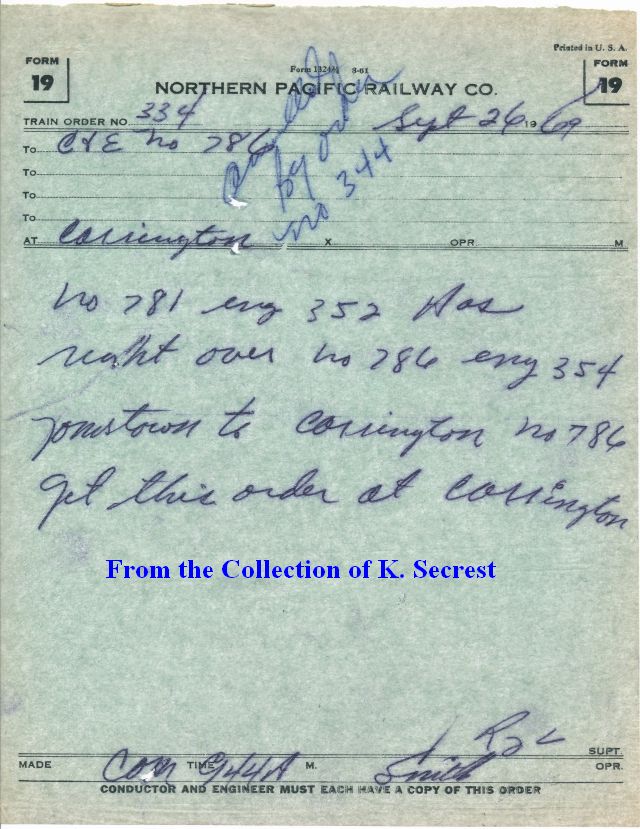 Printed in U. S. A.
FORM 19
Form 1324½ 8-61
FORM 19
NORTHERN PACIFIC RAILWAY CO.
TRAIN ORDER NO. 334 Sept 26 1969
To C&E No 786
To
To
To
AT Carrington X OPR. M
by order
no 344
No 781 eng 352 Has
right over No 786 eng 354
Jamestown to Carrington No 786
get this order at Carrington
From the Collection of K. Secrest
SUPT.
MADE Com TIME 944A M. Smith OPR.
CONDUCTOR AND ENGINEER MUST EACH HAVE A COPY OF THIS ORDER